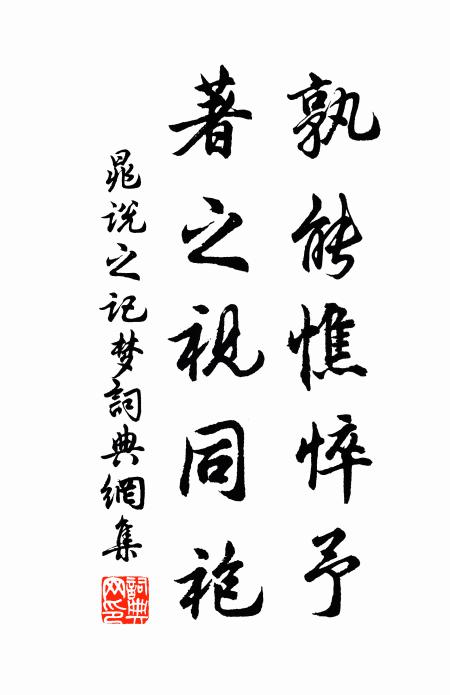 孰能憔悴予
著之视同袍
晁说之记梦词典網集
詞典網印